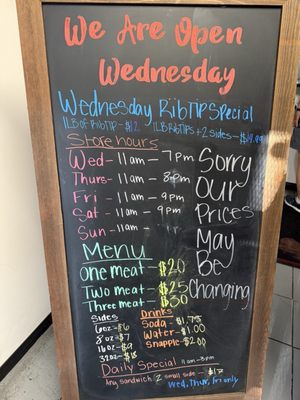 We Are Open
Wednesday
Wednesday RibTip Special
1LB of RibTIP - $12 1LB RibTIPs + 2 sides -
Store hours
Wed - 11am - 7pm
Thurs - 11am - 8pm
Fri - 11am - 9pm
Sat - 11am - 9pm
Sun - 11am -
Sorry
Our
Prices
May
Be
Changing
Menu
One meat - $20
Two meat - $25
Three meat - $30
Sides
6oz - $6
8oz - $7
16oz - $9
32oz - $18
Drinks
Soda - $1.75
Water - $1.00
Snapple - $2.00
Daily Special 11am - 3pm
Any sandwich 2 small side -
Wed, Thur, Fri only